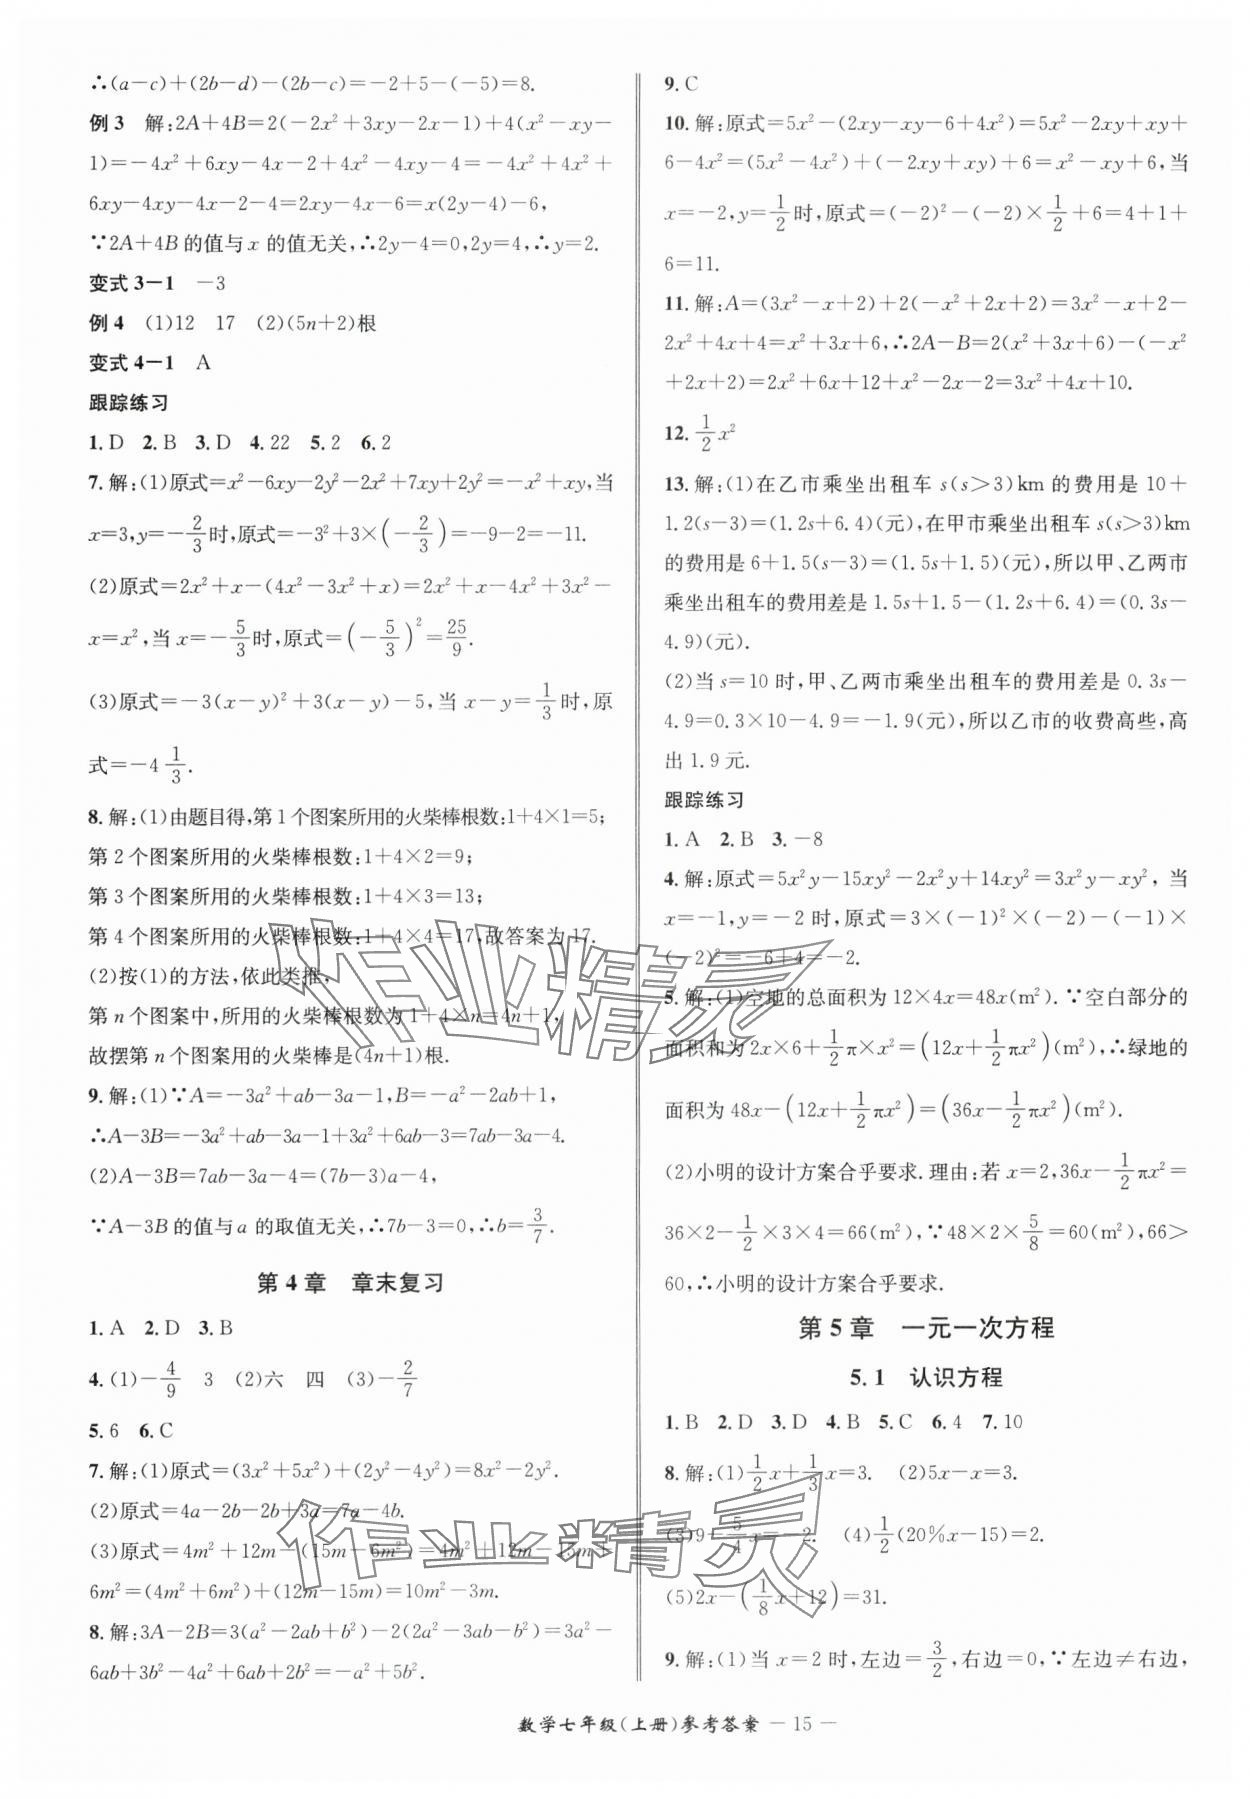 ∴(a－c)＋(2b－d)－(2b－c)＝－2＋5－(－5)＝8.
例3 解:2A＋4B＝2(－2x²＋3xy－2x－1)＋4(x²－xy－
1)＝－4x²＋6xy－4x－2＋4x²－4xy－4＝－4x²＋4x²＋
6xy－4xy－4x－2－4＝2xy－4x－6＝x(2y－4)－6,
∵2A＋4B的值与x的值无关,∴2y－4＝0,2y＝4,∴y＝2.
变式3－1 －3
例4 (1)12 17 (2)(5n＋2)根
变式4－1 A
跟踪练习
1. D 2. B 3. D 4. 22 5. 2 6. 2
7. 解:(1)原式＝x²－6xy－2y²－2x²＋7xy＋2y²＝－x²＋xy,当
x＝3,y＝－2/3时,原式＝－3²＋3×(－2/3)＝－9－2＝－11.
(2)原式＝2x²＋x－(4x²－3x²＋x)＝2x²＋x－4x²＋3x²－
x＝x²,当x＝－5/3时,原式＝(－5/3)²＝25/9.
(3)原式＝－3(x－y)²＋3(x－y)－5,当x－y＝1/3时,原
式＝－4 1/3.
8. 解:(1)由题目得,第1个图案所用的火柴棒根数:1＋4×1＝5;
第2个图案所用的火柴棒根数:1＋4×2＝9;
第3个图案所用的火柴棒根数:1＋4×3＝13;
第4个图案所用的火柴棒根数:1＋4×4＝17,故答案为17.
(2)按(1)的方法,依此类推,
第n个图案中,所用的火柴棒根数为1＋4×n＝4n＋1,
故摆第n个图案用的火柴棒是(4n＋1)根.
9. 解:(1)∵A＝－3a²＋ab－3a－1,B＝－a²－2ab＋1,
∴A－3B＝－3a²＋ab－3a－1＋3a²＋6ab－3＝7ab－3a－4.
(2)A－3B＝7ab－3a－4＝(7b－3)a－4,
∵A－3B的值与a的取值无关,∴7b－3＝0,∴b＝3/7.
第4章 章末复习
1. A 2. D 3. B
4. (1)－4/9 3 (2)六 四 (3)－2/7
5. 6 6. C
7. 解:(1)原式＝(3x²＋5x²)＋(2y²－4y²)＝8x²－2y².
(2)原式＝4a－2b－2b＋3a＝7a－4b.
(3)原式＝4m²＋12m－(15m－6m²)＝4m²＋12m－15m＋
6m²＝(4m²＋6m²)＋(12m－15m)＝10m²－3m.
8. 解:3A－2B＝3(a²－2ab＋b²)－2(2a²－3ab－b²)＝3a²－
6ab＋3b²－4a²＋6ab＋2b²＝－a²＋5b².
9. C
10. 解:原式＝5x²－(2xy－xy－6＋4x²)＝5x²－2xy＋xy＋
6－4x²＝(5x²－4x²)＋(－2xy＋xy)＋6＝x²－xy＋6,当
x＝－2,y＝1/2时,原式＝(－2)²－(－2)×1/2＋6＝4＋1＋
6＝11.
11. 解:A＝(3x²－x＋2)＋2(－x²＋2x＋2)＝3x²－x＋2－
2x²＋4x＋4＝x²＋3x＋6,∴2A－B＝2(x²＋3x＋6)－(－x²
＋2x＋2)＝2x²＋6x＋12＋x²－2x－2＝3x²＋4x＋10.
12. 1/2 x²
13. 解:(1)在乙市乘坐出租车s(s＞3)km的费用是10＋
1.2(s－3)＝(1.2s＋6.4)(元),在甲市乘坐出租车s(s＞3)km
的费用是6＋1.5(s－3)＝(1.5s＋1.5)(元),所以甲、乙两市
乘坐出租车的费用差是1.5s＋1.5－(1.2s＋6.4)＝(0.3s－
4.9)(元).
(2)当s＝10时,甲、乙两市乘坐出租车的费用差是0.3s－
4.9＝0.3×10－4.9＝－1.9(元),所以乙市的收费高些,高
出1.9元.
跟踪练习
1. A 2. B 3. －8
4. 解:原式＝5x²y－15xy²－2x²y＋14xy²＝3x²y－xy²,当
x＝－1,y＝－2时,原式＝3×(－1)²×(－2)－(－1)×
(－2)²＝－6＋4＝－2.
5. 解:(1)空地的总面积为12×4x＝48x(m²).∵空白部分的
面积和为2x×6＋1/2π×x²＝(12x＋1/2πx²)(m²),∴绿地的
面积为48x－(12x＋1/2πx²)＝(36x－1/2πx²)(m²).
(2)小明的设计方案合乎要求.理由:若x＝2,36x－1/2πx²＝
36×2－1/2×3×4＝66(m²),∵48×2×5/8＝60(m²),66＞
60,∴小明的设计方案合乎要求.
第5章 一元一次方程
5.1 认识方程
1. B 2. D 3. D 4. B 5. C 6. 4 7. 10
8. 解:(1)1/2x＋1/3x＝3. (2)5x－x＝3.
(3)9－5/4x＝－2. (4)1/2(20%x－15)＝2.
(5)2x－(1/8x＋12)＝31.
9. 解:(1)当x＝2时,左边＝3/2,右边＝0,∵左边≠右边,
数学七年级(上册)参考答案 — 15 —
作业精灵
作业精灵